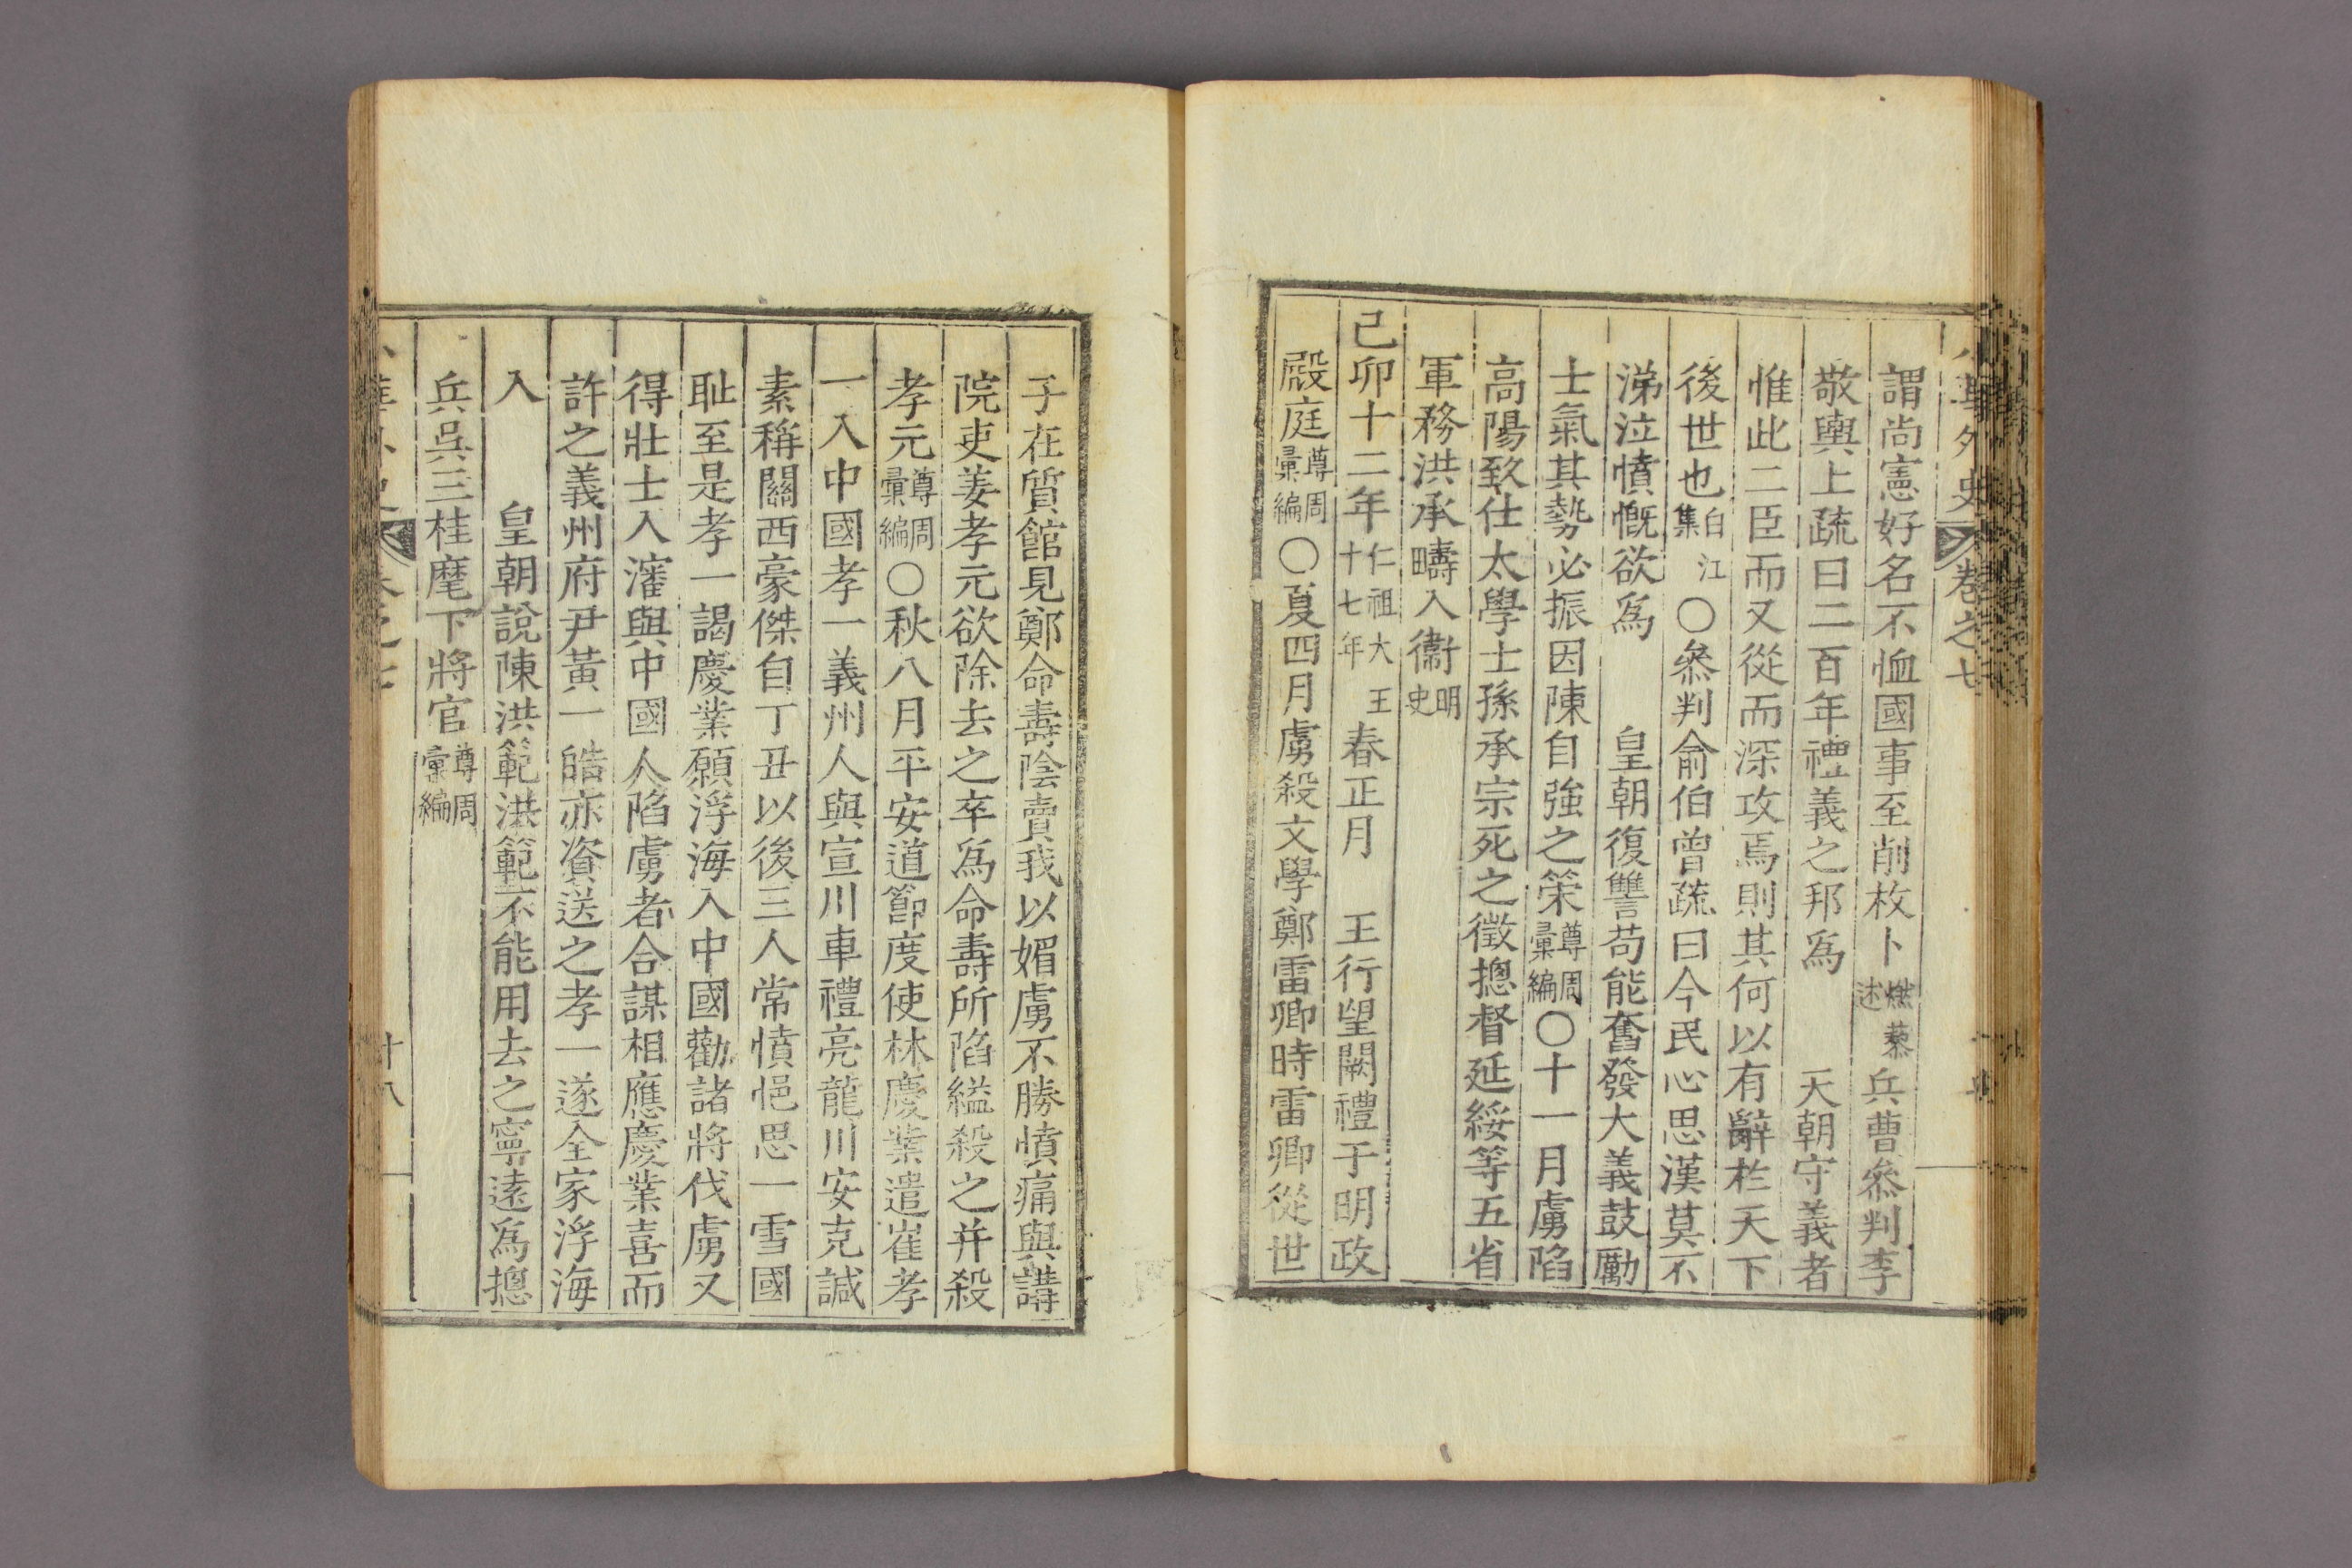 華外史 卷之七
謂尙憲好名不恤國事至削枚卜燃藜述兵曹叅判李
敬輿上疏曰二百年禮義之邦爲 天朝守義者
惟此二臣而又從而深攻焉則其何以有辭於天下
後世也白江集○叅判兪伯曾疏曰今民心思漢莫不
涕泣憤慨欲爲 皇朝復讐苟能奮發大義鼓勵
士氣其勢必振因陳自強之策尊周彙編○十一月虜陷
高陽致仕太學士孫承宗死之徵摠督延綏等五省
軍務洪承疇入衞明史
己卯十二年仁祖大王十七年春正月 王行望闕禮于明政
殿庭尊周彙編○夏四月虜殺文學鄭雷卿時雷卿從世
子在質館見鄭命壽陰賣我以媚虜不勝憤痛與講
院吏姜孝元欲除去之卒爲命壽所陷縊殺之幷殺
孝元尊周彙編○秋八月平安道節度使林慶業遣崔孝
一入中國孝一義州人與宣川車禮亮龍川安克諴
素稱關西豪傑自丁丑以後三人常憤悒思一雪國
恥至是孝一謁慶業願浮海入中國勸諸將伐虜又
得壯士入瀋與中國人陷虜者合謀相應慶業喜而
許之義州府尹黃一皓亦資送之孝一遂全家浮海
入 皇朝說陳洪範洪範不能用去之寧遠爲摠
兵吳三桂麾下將官尊周彙編
華 卷之七 十八